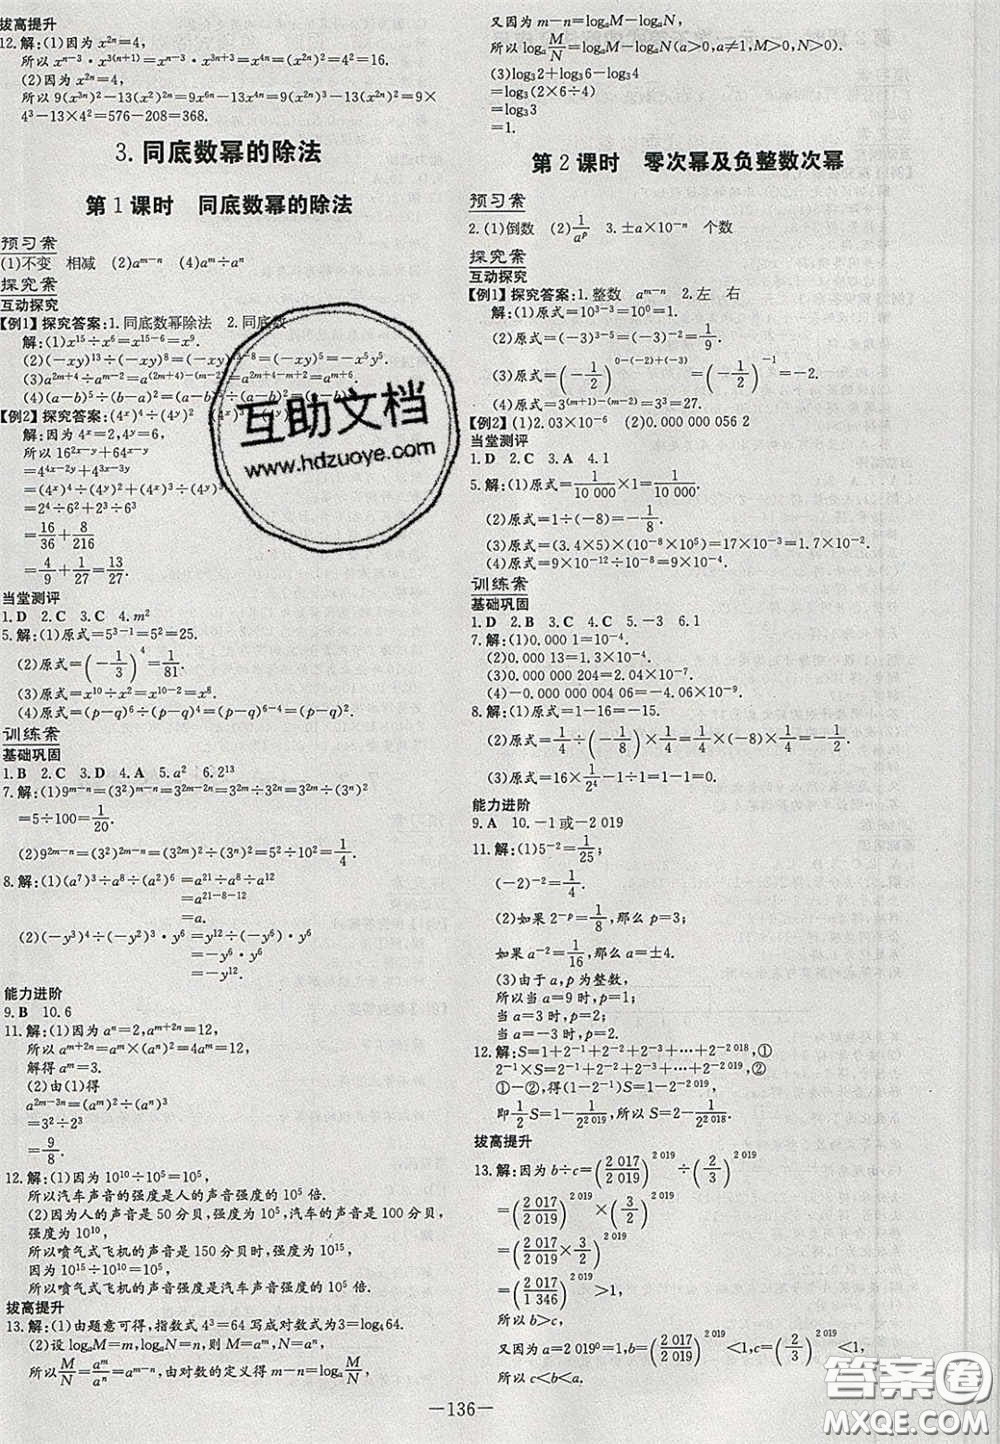 拔高提升
12.解:(1)因为 x²ⁿ=4,
所以 xⁿ⁻³·x³⁽ⁿ⁺¹⁾=xⁿ⁻³·x³ⁿ⁺³=x⁴ⁿ=(x²ⁿ)²=4²=16.
(2)因为 x²ⁿ=4,
所以 9(x³ⁿ)²-13(x²)²ⁿ=9x⁶ⁿ-13x⁴ⁿ=9(x²ⁿ)³-13(x²ⁿ)²=9×
4³-13×4²=576-208=368.
3.同底数幂的除法
第1课时 同底数幂的除法
预习案
(1)不变 相减 (2)aᵐ⁻ⁿ (4)aᵐ÷aⁿ
探究案
互动探究
【例1】探究答案:1.同底数幂除法 2.同底数
解:(1)x¹⁵÷x⁶=x¹⁵⁻⁶=x⁹.
(2)(-xy)¹³÷(-xy)⁸=(-xy)¹³⁻⁸=(-xy)⁵=-x⁵y⁵.
【例2】探究答案:(4ˣ)⁴÷(4ʸ)²
解:因为 4ˣ=2,4ʸ=6,
所以 16²ˣ⁻ʸ+64ˣ⁻ʸ
=4⁴ˣ⁻²ʸ+4³ˣ⁻³ʸ
=(4ˣ)⁴÷(4ʸ)²+(4ˣ)³÷(4ʸ)³
=2⁴÷6²+2³÷6³
=16/36+8/216
=4/9+1/27=13/27.
当堂测评
1.D 2.C 3.C 4.m²
5.解:(1)原式=5³⁻¹=5²=25.
(2)原式=(-1/3)⁴=1/81.
(3)原式=x¹⁰÷x²=x¹⁰⁻²=x⁸.
(4)原式=(p-q)⁶÷(p-q)⁴=(p-q)⁶⁻⁴=(p-q)².
训练案
基础巩固
1.B 2.C 3.D 4.A 5.a² 6.2¹³
7.解:(1)9ᵐ⁻ⁿ=(3²)ᵐ⁻ⁿ=3²ᵐ⁻²ⁿ=3²ᵐ÷3²ⁿ=3²ᵐ÷(3ⁿ)²
=5÷100=1/20.
(2)9²ᵐ⁻ⁿ=(3²)²ᵐ⁻ⁿ=3⁴ᵐ⁻²ⁿ=(3²ᵐ)²÷(3ⁿ)²=5²÷10²=1/4.
8.解:(1)(a⁷)³÷a⁸÷(a²)⁶=a²¹÷a⁸÷a¹²
=a²¹⁻⁸⁻¹²
=a.
(2)(-y³)⁴÷(-y²)³·y⁶=y¹²÷(-y⁶)·y⁶
=-y⁶·y⁶
=-y¹².
能力进阶
9.B 10.6
11.解:(1)因为 aⁿ=2,aᵐ⁺²ⁿ=12,
所以 aᵐ⁺²ⁿ=aᵐ×(aⁿ)²=4aᵐ=12,
解得 aᵐ=3.
(2)由(1)得
a²ᵐ⁻³ⁿ=(aᵐ)²÷(aⁿ)³
=3²÷2³
=9/8.
12.解:(1)因为 10¹⁰÷10⁵=10⁵,
所以汽车声音的强度是人的声音强度的 10⁵ 倍.
(2)因为人的声音是 50 分贝,汽车的声音是 100 分贝,
强度为 10¹⁰,
所以喷气式飞机的声音是 150 分贝时,强度为 10¹⁵,
因为 10¹⁵÷10¹⁰=10⁵,
所以喷气式飞机的声音强度是汽车声音强度的 10⁵ 倍.
拔高提升
13.解:(1)由题意可得,指数式 4³=64 写成对数式为3=log₄64.
(2)设 logₐM=m,logₐN=n,则 M=aᵐ,N=aⁿ,
所以M/N=aᵐ/aⁿ=aᵐ⁻ⁿ,由对数的定义得 m-n=logₐM/N.
又因为 m-n=logₐM-logₐN,
所以 logₐM/N=logₐM-logₐN(a>0,a≠1,M>0,N>0).
(3)log₃2+log₃6-log₃4
=log₃(2×6÷4)
=log₃3
=1.
第2课时 零次幂及负整数次幂
预习案
2.(1)倒数 (2)1/aᵖ 3.±a×10⁻ⁿ 个数
探究案
互动探究
【例1】探究答案:1.整数 aᵐ⁻ⁿ 2.左 右
解:(1)原式=10³⁻³=10⁰=1.
(2)原式=(-3)³⁻⁵=(-3)⁻²=1/9.
(3)原式=(-1/2)⁰⁻⁽⁻²⁾⁺⁽⁻³⁾=(-1/2)⁻¹=-2.
(4)原式=3ᵐ⁺¹⁻⁽ᵐ⁻²⁾=3³=27.
【例2】(1)2.03×10⁻⁶ (2)0.000 000 056 2
当堂测评
1.D 2.C 3.A 4.1
5.解:(1)原式=1/10 000×1=1/10 000.
(2)原式=1÷(-8)=-1/8.
(3)原式=(3.4×5)×(10⁻⁸×10⁵)=17×10⁻³=1.7×10⁻².
(4)原式=9×10⁻¹²÷10⁻⁴=9×10⁻⁸.
训练案
基础巩固
1.D 2.B 3.C 4.C 5.-3 6.1
7.解:(1)0.000 1=10⁻⁴.
(2)0.000 113=1.13×10⁻⁴.
(3)0.000 000 204=2.04×10⁻⁷.
(4)-0.000 004 06=-4.06×10⁻⁶.
8.解:(1)原式=1-16=-15.
(2)原式=1/4÷(-1/8)×1/4=1/4×(-8)×1/4=-1/2.
(3)原式=16×1/2⁴-1÷1=1-1=0.
能力进阶
9.A 10.-1或-2 019
11.解:(1)5⁻²=1/25;
(-2)⁻²=1/4.
(2)如果 2⁻ᵖ=1/8,那么 p=3;
如果 a⁻²=1/16,那么 a=±4.
(3)由于 a,p 为整数,
所以当 a=9 时,p=1;
当 a=3 时,p=2;
当 a=-3 时,p=2.
12.解:S=1+2⁻¹+2⁻²+2⁻³+…+2⁻² ⁰¹⁸,①
2⁻¹×S=2⁻¹+2⁻²+2⁻³+…+2⁻² ⁰¹⁹,②
①-②,得(1-2⁻¹)S=1-2⁻² ⁰¹⁹,
即1/2S=1-1/2² ⁰¹⁹,所以 S=2-1/2² ⁰¹⁸.
拔高提升
13.解:因为 b÷c=(2 017/2 019)² ⁰¹⁹÷(2/3)² ⁰¹⁹
=(2 017/2 019)² ⁰¹⁹×(3/2)² ⁰¹⁹
=(2 017/2 019×3/2)² ⁰¹⁹
=(2 017/1 346)² ⁰¹⁹>1,
所以 b>c,
又因为 a=2 018⁰=1,b=(2 017/2 019)² ⁰¹⁹<1,c=(2/3)² ⁰¹⁹<1,
所以 c<b<a.
—136—
互助文档
www.hdzuoye.com
答案圈
MXQE.COM